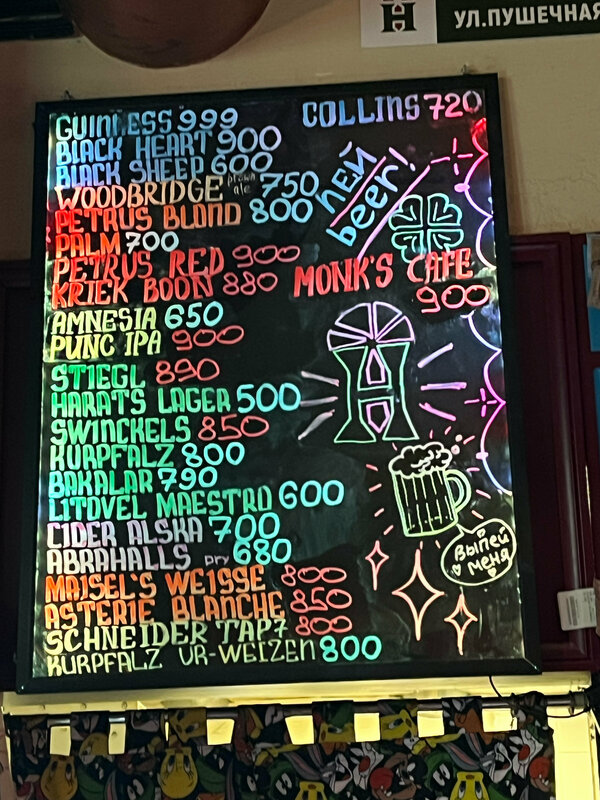 УЛ.ПУШЕЧНАЯ
GUINNESS 999
COLLINS 720
BLACK HEART 900
BLACK SHEEP 600
WOODBRIDGE brown ale 750
PETRUS BLOND 800
ПЕЙ
beer!
PALM 700
PETRUS RED 900
KRIEK BOON 880
MONK'S CAFE
900
AMNESIA 650
PUNC IPA 900
STIEGL 890
HARATS LAGER 500
SWINCKELS 850
KURPFALZ 800
BAKALAR 790
LITOVEL MAESTRO 600
CIDER ALSKA 700
ABRAHALLS DRY 680
Выпей
меня
MAISEL'S WEISSE 800
ASTERIE BLANCHE 850
SCHNEIDER TAP7 800
KURPFALZ UR-WEIZEN 800